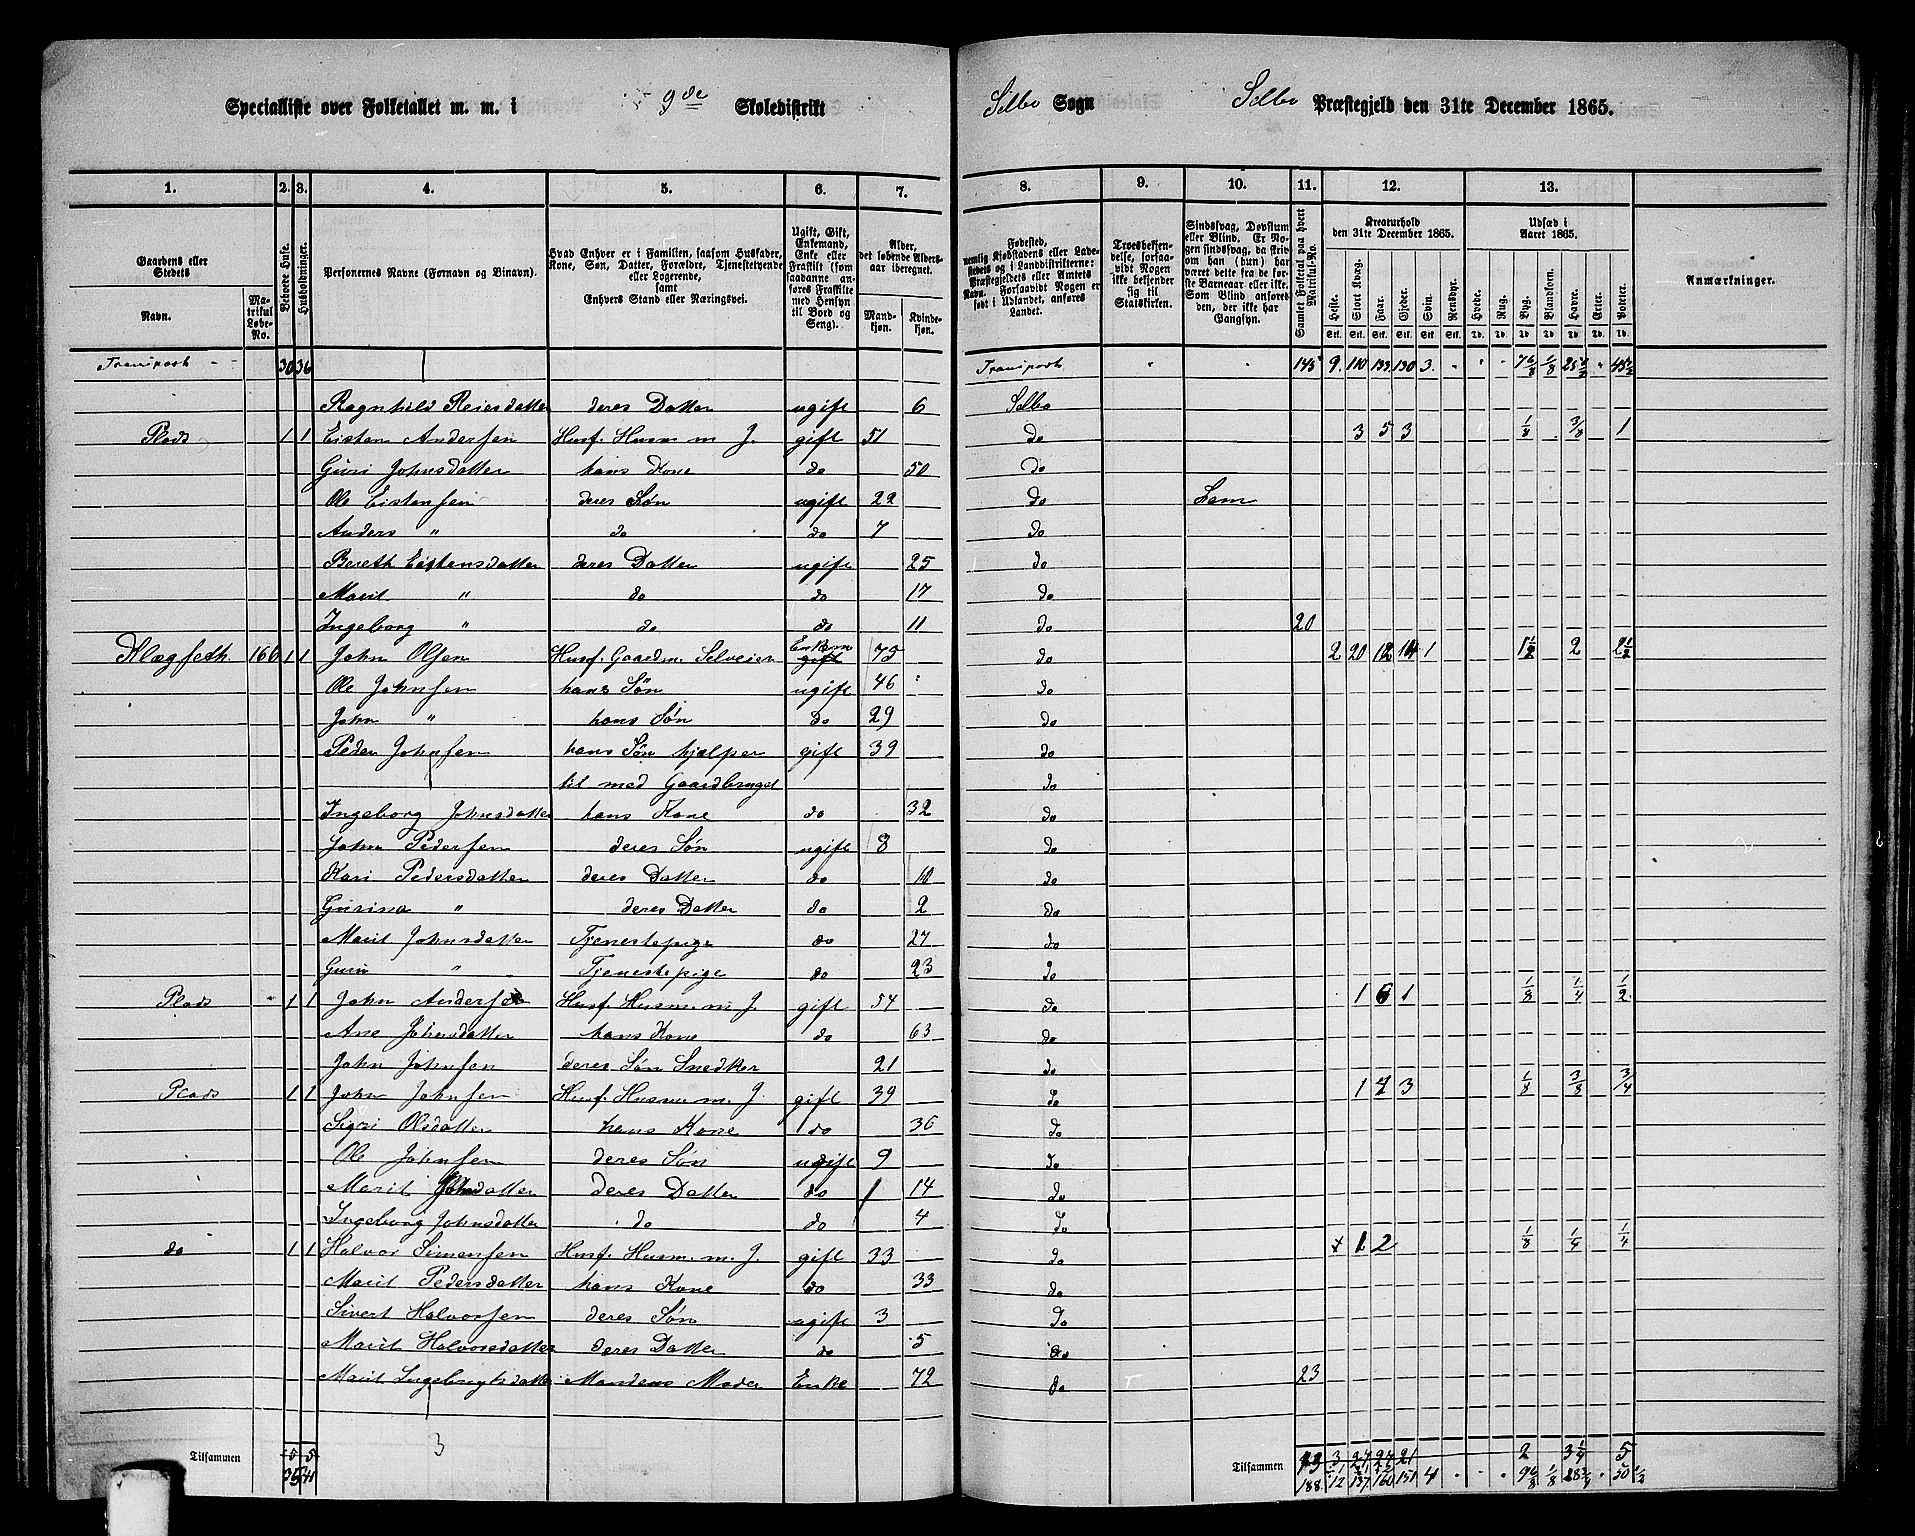 Specialliste over Folketallet m. m. i 9de Skoledistrikt Selbo Sogn Selbo Præstegjeld den 31te December 1865.
1. 2. 3. 4. 5. 6. 7. 8. 9. 10. 11. 12. 13.
Gaardens eller Stedets Navn.
Matrikul Løbe-No.
Beboede Huse.
Husholdninger.
Personernes Navne (Fornavn og Binavn).
Hvad Enhver er i Familien, saasom Husfader, Kone, Søn, Datter, Forældre, Tjenestetyende eller Logerende, samt Enhvers Stand eller Næringsvei.
Ugift, Gift, Enkemand, Enke eller Fraskilt (som saadanne anføres Fraskilte med Hensyn til Bord og Seng).
Alder, det løbende Alders-aar iberegnet.
Mandkjøn. Kvindekjøn.
Fødested, nemlig Kjøbstadens eller Ladestedets og i Landdistrikterne: Præstegjeldets eller Amtets Navn. Forsaavidt Nogen er født i Udlandet, anføres Landet.
Troesbekjendelse, forsaavidt Nogen ikke bekjender sig til Statskirken.
Sindssvag, Døvstum eller Blind. Er Nogen sindssvag, da skrives om han (hun) har været dette fra de første Barneaar eller ikke. Som Blind anføres den, der ikke har Gangsyn.
Samlet Folketal paa hvert Matrikul-No.
Kreaturhold den 31te December 1865.
Heste. Stort Kvæg. Faar. Gjeder. Svin. Rensdyr.
Udsæd i Aaret 1865.
Hvede. Rug. Byg. Blandkorn. Havre. Erter. Poteter.
Anmærkninger.
Transport 30 36 Transport 145 9. 110 133 130 3.
Ragnhild Reiersdatter deres Datter ugift 6 Selbo
Plads 1 1 Eisten Andersen Husf. Husm m J. gift 51 do 3 5 3 1/8 3/8 1
Guri Johnsdatter hans Kone do 50 do
Ole Eistensen deres Søn ugift 22 do Lam
Anders " do do 7 do
Bereth Eistensdatter deres Datter ugift 25 do
Marit " do do 17 do
Ingeborg " do do 11 do 20
Klægseth 166 1 1 John Olsen Husf. Gaardm. Selveier Enkem gift 75 do 2 20 12 14 1 1 1/2 2 2 1/2
Ole Johnsen hans Søn ugift 46 do
John " hans Søn do 29 do
Peder Johnsen hans Søn hjælper gift 39 do
til med Gaardbruget do
Ingeborg Johnsdatter hans Kone do 32 do
John Pedersen deres Søn ugift 8 do
Kari Pedersdatter deres Datter do 10 do
Gurina " deres Datter do 2 do
Marit Johnsdatter Tjenestepige do 27 do
Guri " Tjenestepige do 23 do
Plads " 1 1 John Andersen Husf. Husm. m J. gift 54 do 1 6 1 1/8 1/4 1/2
Ane Johnsdatter hans Kone do 63 do
John Johnsen deres Søn Snedker 21 do
Plads 1 1 John Johnsen Husf. Husm. m. J. gift 39 do 1 7 3 1/8 3/8 3/4
Sigri Olsdatter hans Kone do 36 do
Ole Johnsen deres Søn ugift 9 do
Marit Johnsdatter deres Datter do 14 do
Ingeborg Johnsdatter do do 4 do
do 1 1 Halvor Simensen Husf. Husm. m. J. gift 33 do 1 2 1/8 1/4 1/4
Marit Pedersdatter hans Kone do 33 do
Sivert Halvorsen deres Søn ugift 3 do
Marit Halvorsdatter deres Datter do 5 do
Marit Ingebrigtsdatter Mandens Moder Enke 72 do 23
3
Tilsammen 5 5 Tilsammen 43 3 27 21 2 3 1/4 5
35 41 188 12 137 160 151 4 9 6/8 1/8 28 3/4 50 1/2